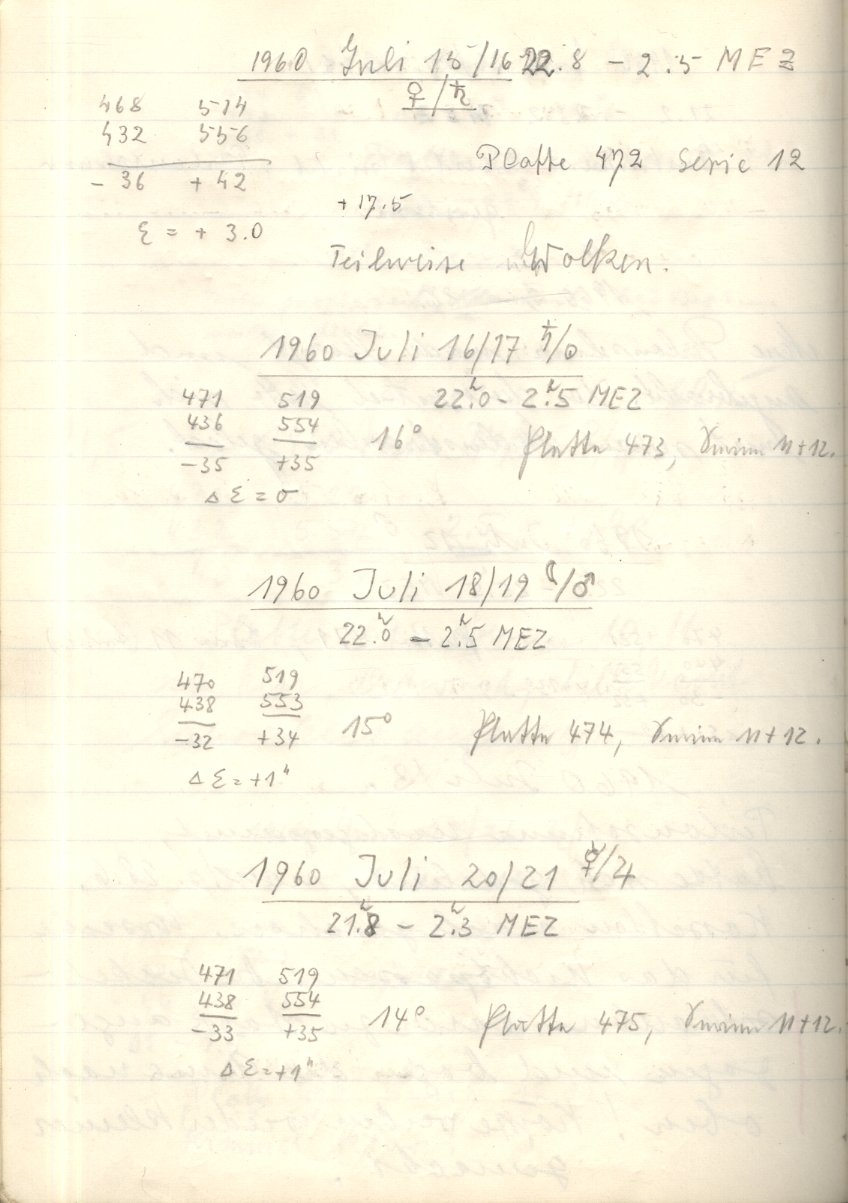 1960 Juli 15/16 22.8 – 2.5 MEZ
♀/♄
468 514
432 556
– 36 + 42
Platte 472 Serie 12
+ 17.5
ε = + 3.0
Teilweise Wolken.
1960 Juli 16/17 ♄/⊙
22.ʰ0 – 2.ʰ5 MEZ
471 519
436 554
–35 +35
16° Platte 473, Serien 11+12.
Δ ε = 0
1960 Juli 18/19 ☾/♂
22.ʰ0 – 2.ʰ5 MEZ
470 519
438 553
–32 +34
15° Platte 474, Serien 11+12.
Δ ε = +1"
1960 Juli 20/21 ☿/♃
21.ʰ8 – 2.ʰ3 MEZ
471 519
438 554
–33 +35
14° Platte 475, Serien 11+12.
Δ ε = +1"